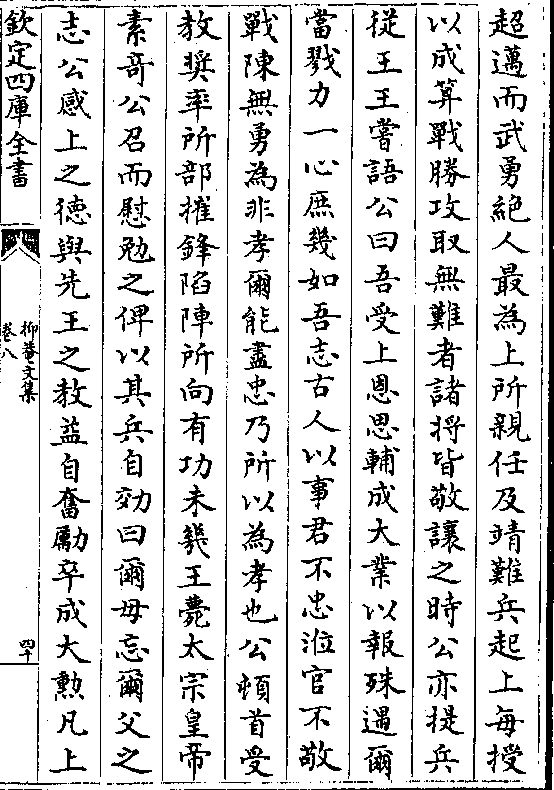 超邁而武勇絶人最為上所親任及靖難兵起上每授
以成算戰勝攻取無難者諸将皆敬讓之時公亦提兵
從王王嘗語公曰吾受上恩思輔成大業以報殊遇爾
當戮力一心庶幾如吾志古人以事君不忠涖官不敬
戰陳無勇為非孝爾能盡忠乃所以為孝也公頓首受
教奨率所部摧鋒陷陣所向有功未㡬王薨太宗皇帝
素竒公召而慰勉之俾以其兵自効曰爾毋忘爾父之
志公感上之德與先王之教益自奮勵卒成大勲凡上
欽定四庫全書
抑菴文集
卷八
四十